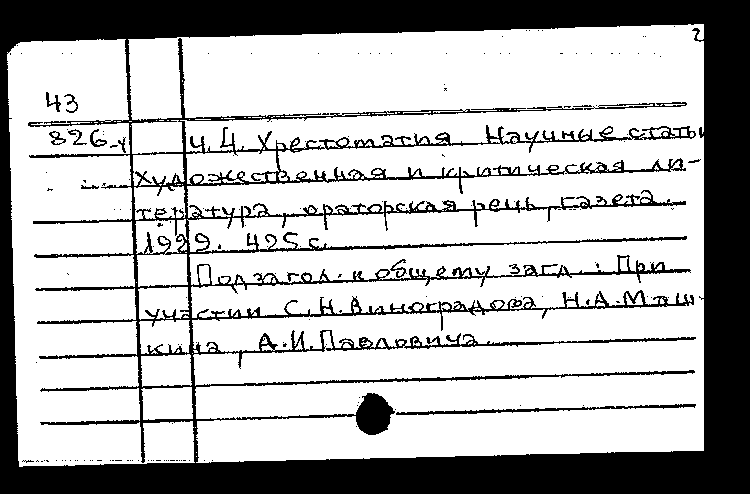 2
43
826-4 Ч.4. Хрестоматия. Научные статьи
художественная и критическая ли-
тература, ораторская речь, газета.
1929. 495 с.
Подзагол. к общему загл.: При
участии С.Н.Виноградова, Н.А.Маш-
кина, А.И.Павловича.